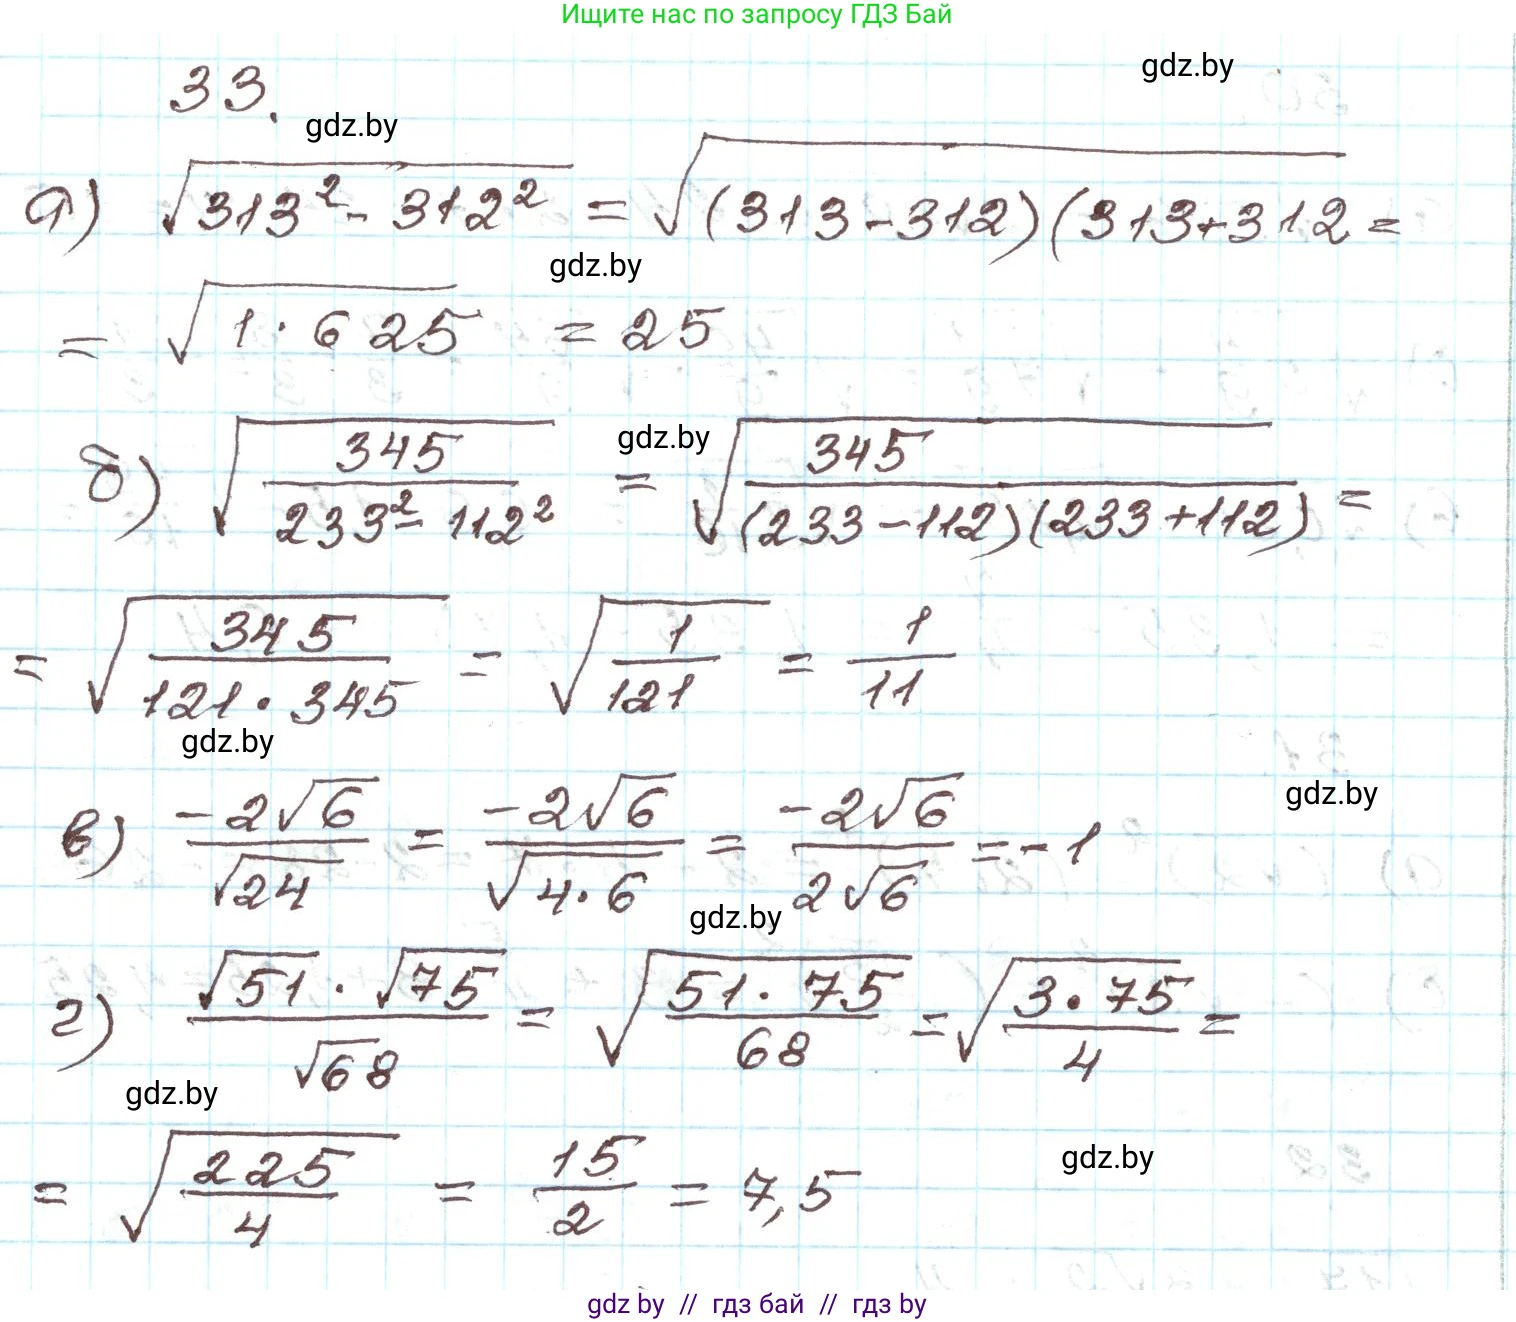 Ищите нас по запросу ГДЗ Бай
gdz.by
33.
gdz.by
а) √(313² - 312²) = √((313-312)(313+312 =
gdz.by
= √(1·625) = 25
gdz.by
б) √(345/(233² - 112²)) = √(345/((233-112)(233+112))) =
= √(345/(121·345)) = √(1/121) = 1/11
gdz.by
gdz.by
в) -2√6/√24 = -2√6/√(4·6) = -2√6/2√6 = -1
gdz.by
г) √51·√75/√68 = √(51·75/68) = √(3·75/4) =
gdz.by
gdz.by
= √(225/4) = 15/2 = 7,5
gdz by // гдз бай // гдз by